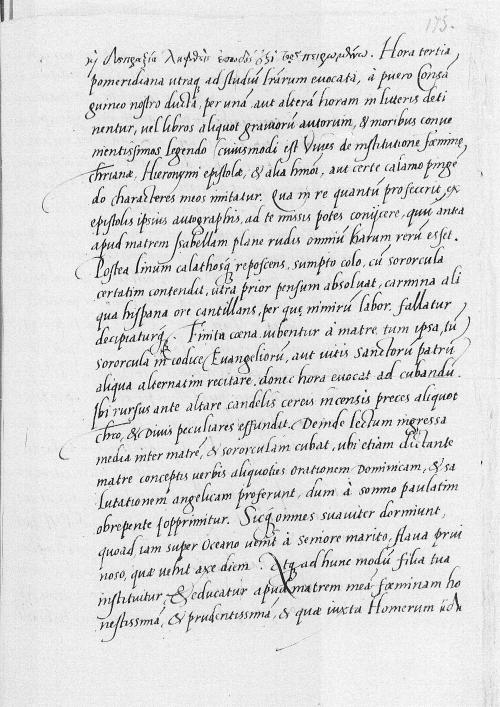 175.
Hora tertia
pomeridiana utraq ad studiū lrarum evocata, à puero Consā
guineo nostro ducta, per unā, aut alterā horam in litteris deti
nentur, vel libros aliquot graviorū autorum, & moribus conve
nientissimos legendo (cuiusmodi est Vives de institutione fœminę
chrianæ, Hieronymi epistolæ, & alia hmōi, aut certe calamo pinge
do characteres meos imitatur. Qua in re quantū profecerit, ex
epistolis ipsius autographis, ad te missis potes coniicere, quū antea
apud matrem Isabellam plane rudis omniū harum rerū esset.
Postea linum calathosq reposcens, sumpto colo, cū sororcula
certatim contendit, utra prior pensum absolvat, carmina ali
qua hispana ore cantillans, per quę nimirū labor fallatur
decipiaturq. Finita cœna iubentur à matre, tum ipsa, tū
sororcula in codice Evangeliorū, aut vitis Sanctorū patrū
aliqua alternatim recitare, donec hora evocat ad cubandū.
Ibi rursus ante altare candelis cereis incensis preces aliquot
chro, & Divis peculiares effundit. Deinde lectum ingressa
media inter matrē, & sororculam cubat, ubi etiam dictante
matre conceptis verbis aliquoties orationem Dominicam, & sa
lutationem angelicam proferunt, dum à somno paulatim
obrepente opprimitur. Sicq omnes suaviter dormiunt,
quoad iam super Oceano venit à seniore marito, flava prui
noso, quæ vehit axe diem. Atq ad hunc modū filia tua
instituitur & educatur apud matrem meā fœminam ho
nestissimā, & prudentissimā, & quæ iuxta Homerum